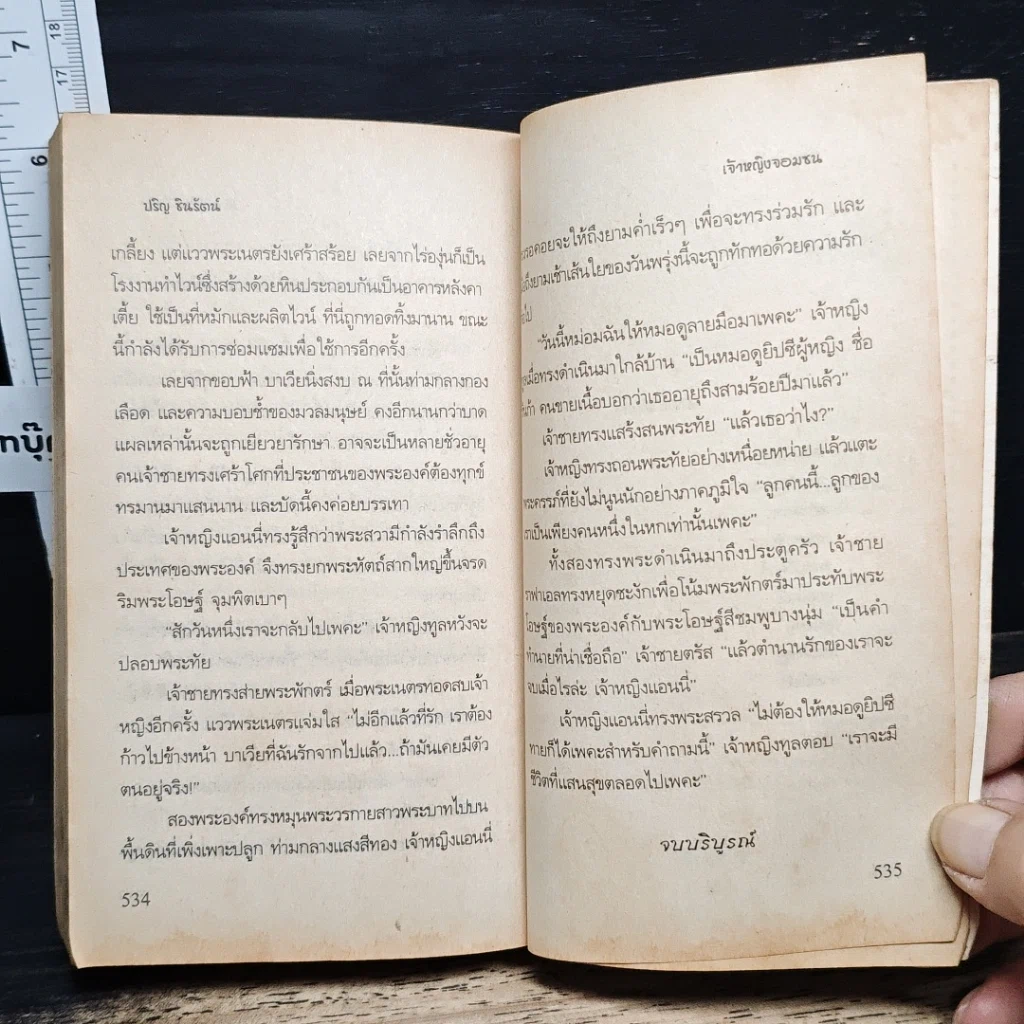 7
18
17
6
ปริญ ชินรัตน์
เกลี้ยง แต่แววพระเนตรยังเศร้าสร้อย เลยจากไร่องุ่นก็เป็น
โรงงานทำไวน์ซึ่งสร้างด้วยหินประกอบกันเป็นอาคารหลังคา
เตี้ย ใช้เป็นที่หมักและผลิตไวน์ ที่นี่ถูกทอดทิ้งมานาน ขณะ
นี้กำลังได้รับการซ่อมแซมเพื่อใช้การอีกครั้ง
เลยจากขอบฟ้า บาเวียนิ่งสงบ ณ ที่นั้นท่ามกลางกอง
เลือด และความบอบช้ำของมวลมนุษย์ คงอีกนานกว่าบาด
แผลเหล่านั้นจะถูกเยียวยารักษา อาจจะเป็นหลายชั่วอายุ
คนเจ้าชายทรงเศร้าโศกที่ประชาชนของพระองค์ต้องทุกข์
ทรมานมาแสนนาน และบัดนี้คงค่อยบรรเทา
เจ้าหญิงแอนนี่ทรงรู้สึกว่าพระสวามีกำลังรำลึกถึง
ประเทศของพระองค์ จึงทรงยกพระหัตถ์สากใหญ่ขึ้นจรด
ริมพระโอษฐ์ จุมพิตเบาๆ
“สักวันหนึ่งเราจะกลับไปเพคะ” เจ้าหญิงทูลหวังจะ
ปลอบพระทัย
เจ้าชายทรงส่ายพระพักตร์ เมื่อพระเนตรทอดสบเจ้า
หญิงอีกครั้ง แววพระเนตรแจ่มใส “ไม่อีกแล้วที่รัก เราต้อง
ก้าวไปข้างหน้า บาเวียที่ฉันรักจากไปแล้ว...ถ้ามันเคยมีตัว
ตนอยู่จริง!”
สองพระองค์ทรงหมุนพระวรกายสาวพระบาทไปบน
พื้นดินที่เพิ่งเพาะปลูก ท่ามกลางแสงสีทอง เจ้าหญิงแอนนี่
534
เจ้าหญิงจอมซน
รอคอยจะให้ถึงยามค่ำเร็วๆ เพื่อจะทรงร่วมรัก และ
ถึงยามเช้าเส้นใยของวันพรุ่งนี้จะถูกทักทอด้วยความรัก
ไป
“วันนี้หม่อมฉันให้หมอดูลายมือมาเพคะ” เจ้าหญิง
เมื่อทรงดำเนินมาใกล้บ้าน “เป็นหมอดูยิปซีผู้หญิง ชื่อ
คนขายเนื้อบอกว่าเธออายุถึงสามร้อยปีมาแล้ว”
เจ้าชายทรงแสร้งสนพระทัย “แล้วเธอว่าไง?”
เจ้าหญิงทรงถอนพระทัยอย่างเหนื่อยหน่าย แล้วแตะ
พระครรภ์ที่ยังไม่นูนนักอย่างภาคภูมิใจ “ลูกคนนี้...ลูกของ
เราเป็นเพียงคนหนึ่งในหกเท่านั้นเพคะ”
ทั้งสองทรงพระดำเนินมาถึงประตูครัว เจ้าชาย
ราฟาเอลทรงหยุดชะงักเพื่อโน้มพระพักตร์มาประทับพระ
โอษฐ์ของพระองค์กับพระโอษฐ์สีชมพูบางนุ่ม “เป็นคำ
ทำนายที่น่าเชื่อถือ” เจ้าชายตรัส “แล้วตำนานรักของเราจะ
จบเมื่อไรล่ะ เจ้าหญิงแอนนี่”
เจ้าหญิงแอนนี่ทรงพระสรวล “ไม่ต้องให้หมอดูยิปซี
ทายก็ได้เพคะสำหรับคำถามนี้” เจ้าหญิงทูลตอบ “เราจะมี
ชีวิตที่แสนสุขตลอดไปเพคะ”
จบบริบูรณ์
535